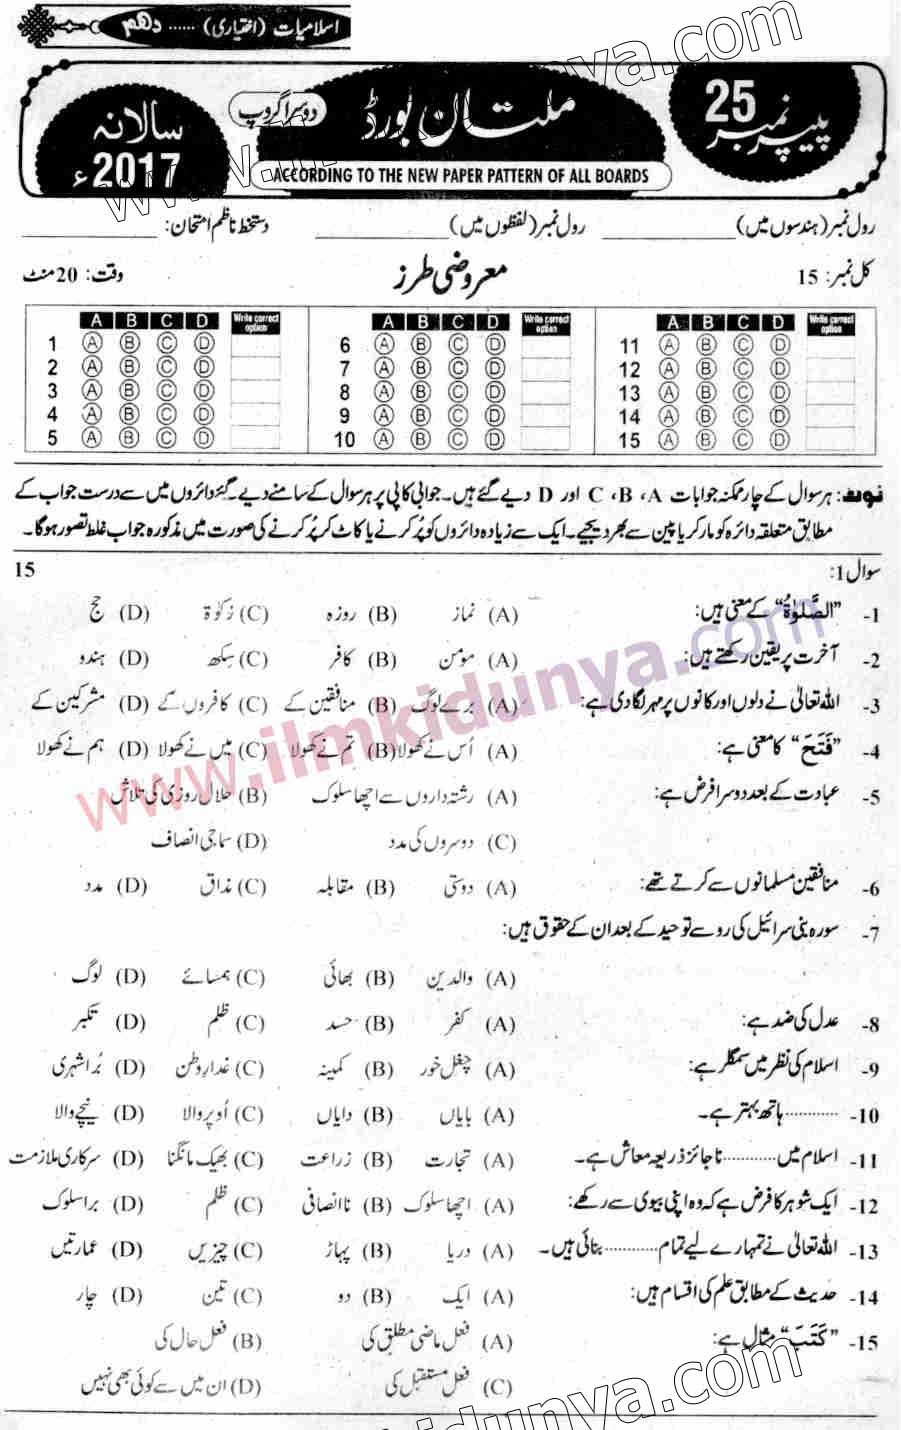 اسلامیات (اختیاری) ...... دہم
پیپر نمبر 25
ملتان بورڈ
دوسرا گروپ
سالانہ 2017ء
ACCORDING TO THE NEW PAPER PATTERN OF ALL BOARDS
رول نمبر (ہندسوں میں) ____________ رول نمبر (لفظوں میں) ____________ دستخط ناظم امتحان: ____________
کل نمبر: 15 معروضی طرز وقت: 20 منٹ
A B C D Write correct option A B C D Write correct option A B C D Write correct option
1 A B C D 6 A B C D 11 A B C D
2 A B C D 7 A B C D 12 A B C D
3 A B C D 8 A B C D 13 A B C D
4 A B C D 9 A B C D 14 A B C D
5 A B C D 10 A B C D 15 A B C D
نوٹ: ہر سوال کے چار ممکنہ جوابات A، B، C اور D دیے گئے ہیں۔ جوابی کاپی پر ہر سوال کے سامنے دیے گئے دائروں میں سے درست جواب کے
مطابق متعلقہ دائرہ کو مارکر یا پین سے بھر دیجیے۔ ایک سے زیادہ دائروں کو پُر کرنے یا کاٹ کر پُر کرنے کی صورت میں مذکورہ جواب غلط تصور ہوگا۔
سوال 1: 15
1- ”الصَّلٰوۃُ“ کے معنی ہیں: (A) نماز (B) روزہ (C) زکوٰۃ (D) حج
2- آخرت پر یقین رکھتے ہیں: (A) مومن (B) کافر (C) سکھ (D) ہندو
3- اللہ تعالیٰ نے دلوں اور کانوں پر مہر لگا دی ہے: (A) برے لوگ (B) منافقین کے (C) کافروں کے (D) مشرکین کے
4- ”فَتَحَ“ کا معنی ہے: (A) اُس نے کھولا (B) تم نے کھولا (C) میں نے کھولا (D) ہم نے کھولا
5- عبادت کے بعد دوسرا فرض ہے: (A) رشتہ داروں سے اچھا سلوک (B) حلال روزی کی تلاش
(C) دوسروں کی مدد (D) سماجی انصاف
6- منافقین مسلمانوں سے کرتے تھے: (A) دوستی (B) مقابلہ (C) مذاق (D) مدد
7- سورہ بنی اسرائیل کی رو سے توحید کے بعد ان کے حقوق ہیں:
(A) والدین (B) بھائی (C) ہمسائے (D) لوگ
8- عدل کی ضد ہے: (A) کفر (B) حسد (C) ظلم (D) تکبر
9- اسلام کی نظر میں سمگلر ہے: (A) چغل خور (B) کمینہ (C) غدارِ وطن (D) بُرا شہری
10- ............ ہاتھ بہتر ہے۔ (A) بایاں (B) دایاں (C) اُوپر والا (D) نیچے والا
11- اسلام میں ............ ناجائز ذریعہ معاش ہے۔ (A) تجارت (B) زراعت (C) بھیک مانگنا (D) سرکاری ملازمت
12- ایک شوہر کا فرض ہے کہ وہ اپنی بیوی سے رکھے: (A) اچھا سلوک (B) ناانصافی (C) ظلم (D) برا سلوک
13- اللہ تعالیٰ نے تمہارے لیے تمام ............ بنائی ہیں۔ (A) دریا (B) پہاڑ (C) چیزیں (D) عمارتیں
14- حدیث کے مطابق علم کی اقسام ہیں: (A) ایک (B) دو (C) تین (D) چار
15- ”کَتَبَ“ مثال ہے: (A) فعل ماضی مطلق کی (B) فعل حال کی
(C) فعل مستقبل کی (D) ان میں سے کوئی بھی نہیں
www.ilmkidunya.com